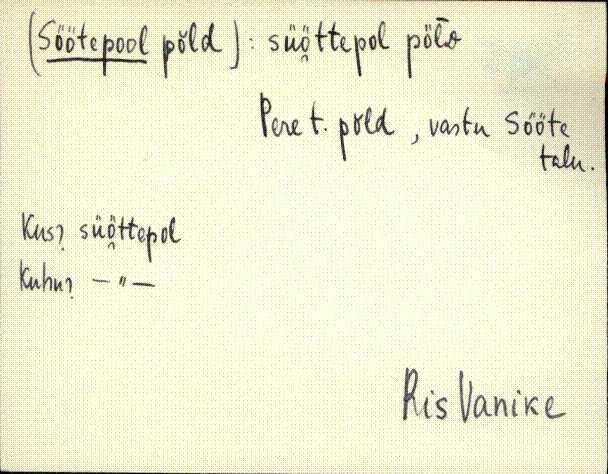 (Söötepool põld): süö̭ttepol põlᴅ
Pere t. põld, vastu Sööte
talu.
Kus? süö̭ttepol
Kuhu? — " —
Ris Vanike